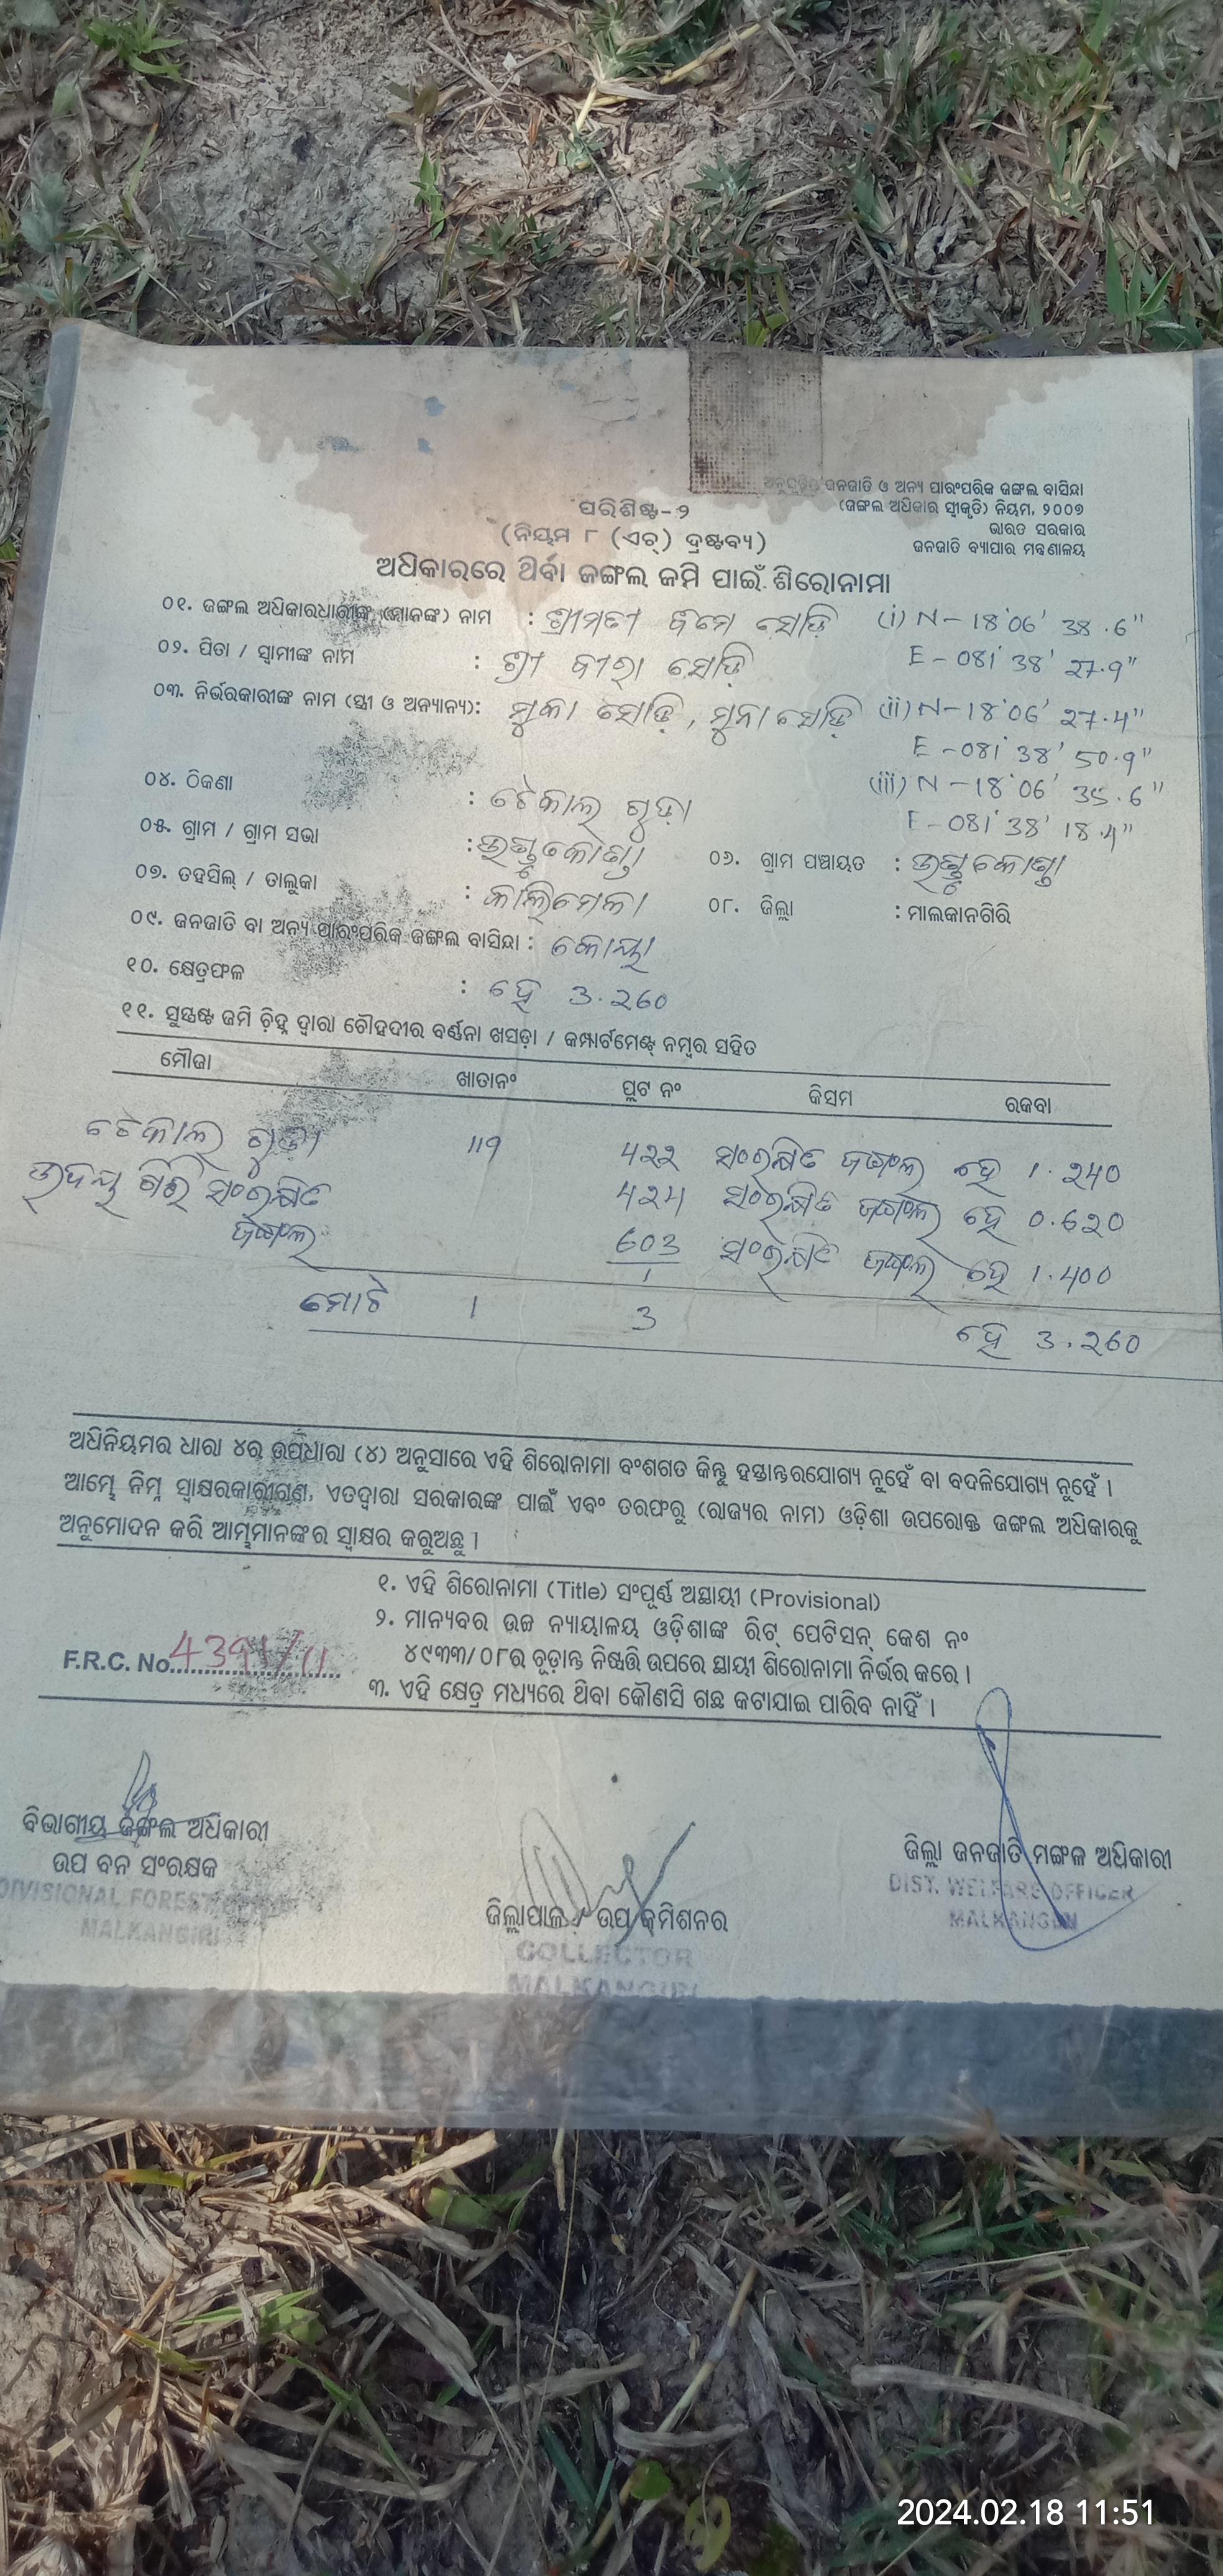 ଅନୁସୂଚିତ ଜନଜାତି ଓ ଅନ୍ୟ ପାରଂପରିକ ଜଙ୍ଗଲ ବାସିନ୍ଦା
(ଜଙ୍ଗଲ ଅଧିକାର ସ୍ୱୀକୃତି) ନିୟମ, ୨୦୦୭
ଭାରତ ସରକାର
ଜନଜାତି ବ୍ୟାପାର ମନ୍ତ୍ରଣାଳୟ
ପରିଶିଷ୍ଟ-୨
(ନିୟମ ୮ (ଏଚ୍) ଦ୍ରଷ୍ଟବ୍ୟ)
ଅଧିକାରରେ ଥିବା ଜଙ୍ଗଲ ଜମି ପାଇଁ ଶିରୋନାମା
୦୧. ଜଙ୍ଗଲ ଅଧିକାରଧାରୀଙ୍କ (ମାନଙ୍କ) ନାମ : ଶ୍ରୀମତୀ ସୋଡ଼ି (i) N-18°06' 38.6"
E-081°38' 27.9"
୦୨. ପିତା / ସ୍ୱାମୀଙ୍କ ନାମ : ଶ୍ରୀ ବୀରା ସୋଡ଼ି
୦୩. ନିର୍ଭରକାରୀଙ୍କ ନାମ (ସ୍ତ୍ରୀ ଓ ଅନ୍ୟାନ୍ୟ): ମୁକା ସୋଡ଼ି, ମୁନା ସୋଡ଼ି (ii) N-18°06' 27.4"
E-081°38' 50.9"
(iii) N-18°06' 35.6"
E-081°38' 18.4"
୦୪. ଠିକଣା : ଟେକାଲ ଗୁଡ଼ା
୦୫. ଗ୍ରାମ / ଗ୍ରାମ ସଭା : ୦୬. ଗ୍ରାମ ପଞ୍ଚାୟତ :
୦୭. ତହସିଲ୍ / ତାଲୁକା : କାଲିମେଳା ୦୮. ଜିଲ୍ଲା : ମାଲକାନଗିରି
୦୯. ଜନଜାତି ବା ଅନ୍ୟ ପାରଂପରିକ ଜଙ୍ଗଲ ବାସିନ୍ଦା : କୋୟା
୧୦. କ୍ଷେତ୍ରଫଳ : ହେ 3.260
୧୧. ସୁସ୍ପଷ୍ଟ ଜମି ଚିହ୍ନ ଦ୍ୱାରା ଚୌହଦୀର ବର୍ଣ୍ଣନା ଖସଡ଼ା / କମ୍ପାର୍ଟମେଣ୍ଟ୍ ନମ୍ବର ସହିତ
ମୌଜା ଖାତାନଂ ପ୍ଲଟ ନଂ କିସମ ରକବା
ଟେକାଲ ଗୁଡ଼ା 119 422 ସଂରକ୍ଷିତ ଜଙ୍ଗଲ ହେ 1.240
ଉଦୟ ଗିରି ସଂରକ୍ଷିତ 424 ସଂରକ୍ଷିତ ଜଙ୍ଗଲ ହେ 0.620
ଜଙ୍ଗଲ 603/1 ସଂରକ୍ଷିତ ଜଙ୍ଗଲ ହେ 1.400
ମୋଟ 1 3 ହେ 3.260
ଅଧିନିୟମର ଧାରା ୪ର ଉପଧାରା (୪) ଅନୁସାରେ ଏହି ଶିରୋନାମା ବଂଶଗତ କିନ୍ତୁ ହସ୍ତାନ୍ତରଯୋଗ୍ୟ ନୁହେଁ ବା ବଦଳିଯୋଗ୍ୟ ନୁହେଁ ।
ଆମ୍ଭେ ନିମ୍ନ ସ୍ୱାକ୍ଷରକାରୀଗଣ, ଏତଦ୍ୱାରା ସରକାରଙ୍କ ପାଇଁ ଏବଂ ତରଫରୁ (ରାଜ୍ୟର ନାମ) ଓଡ଼ିଶା ଉପରୋକ୍ତ ଜଙ୍ଗଲ ଅଧିକାରକୁ
ଅନୁମୋଦନ କରି ଆମ୍ଭମାନଙ୍କର ସ୍ୱାକ୍ଷର କରୁଅଛୁ ।
୧. ଏହି ଶିରୋନାମା (Title) ସଂପୂର୍ଣ୍ଣ ଅସ୍ଥାୟୀ (Provisional)
୨. ମାନ୍ୟବର ଉଚ୍ଚ ନ୍ୟାୟାଳୟ ଓଡ଼ିଶାଙ୍କ ରିଟ୍ ପେଟିସନ୍ କେଶ ନଂ
୪୯୩୩/୦୮ର ଚୂଡ଼ାନ୍ତ ନିଷ୍ପତ୍ତି ଉପରେ ସ୍ଥାୟୀ ଶିରୋନାମା ନିର୍ଭର କରେ ।
୩. ଏହି କ୍ଷେତ୍ର ମଧ୍ୟରେ ଥିବା କୌଣସି ଗଛ କଟାଯାଇ ପାରିବ ନାହିଁ ।
F.R.C. No.
ବିଭାଗୀୟ ଜଙ୍ଗଲ ଅଧିକାରୀ
ଉପ ବନ ସଂରକ୍ଷକ
DIVISIONAL FOREST
MALKANGIRI
ଜିଲ୍ଲାପାଳ / ଉପ କମିଶନର
COLLECTOR
MALKANGIRI
ଜିଲ୍ଲା ଜନଜାତି ମଙ୍ଗଳ ଅଧିକାରୀ
DIST. WELFARE OFFICER
MALKANGIRI
2024.02.18 11:51